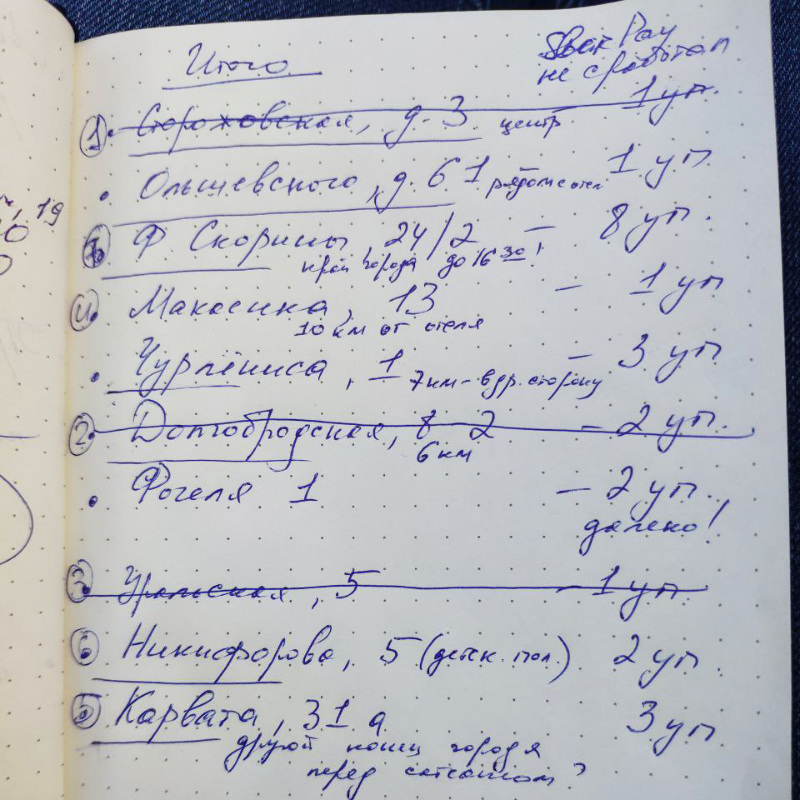 Итого
Sber Pay
не сработал
1 Сторожовская, д. 3 центр – 1 уп.
• Ольшевского, д. 61 рядом с отел 1 уп
Ф Скорины, 24/2 – 8 уп.
край города до 16 30!
4 Макаенка, 13 – 1 уп
10 км от отеля
• Чурлениса, 1 – 3 уп
7 км - в др. сторону
2 Долгобродская, 8 2 – 2 уп.
6 км
• Фогеля 1 – 2 уп.
далеко!
3 Уральская, 5 – 1 уп
6 Никифорова, 5 (детск. пол.) 2 уп
5 Карвата, 31а 3 уп
другой конец города
перед
19